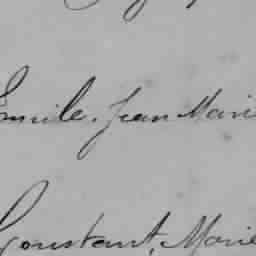 Emile, Jean Marie
Constant, Marie